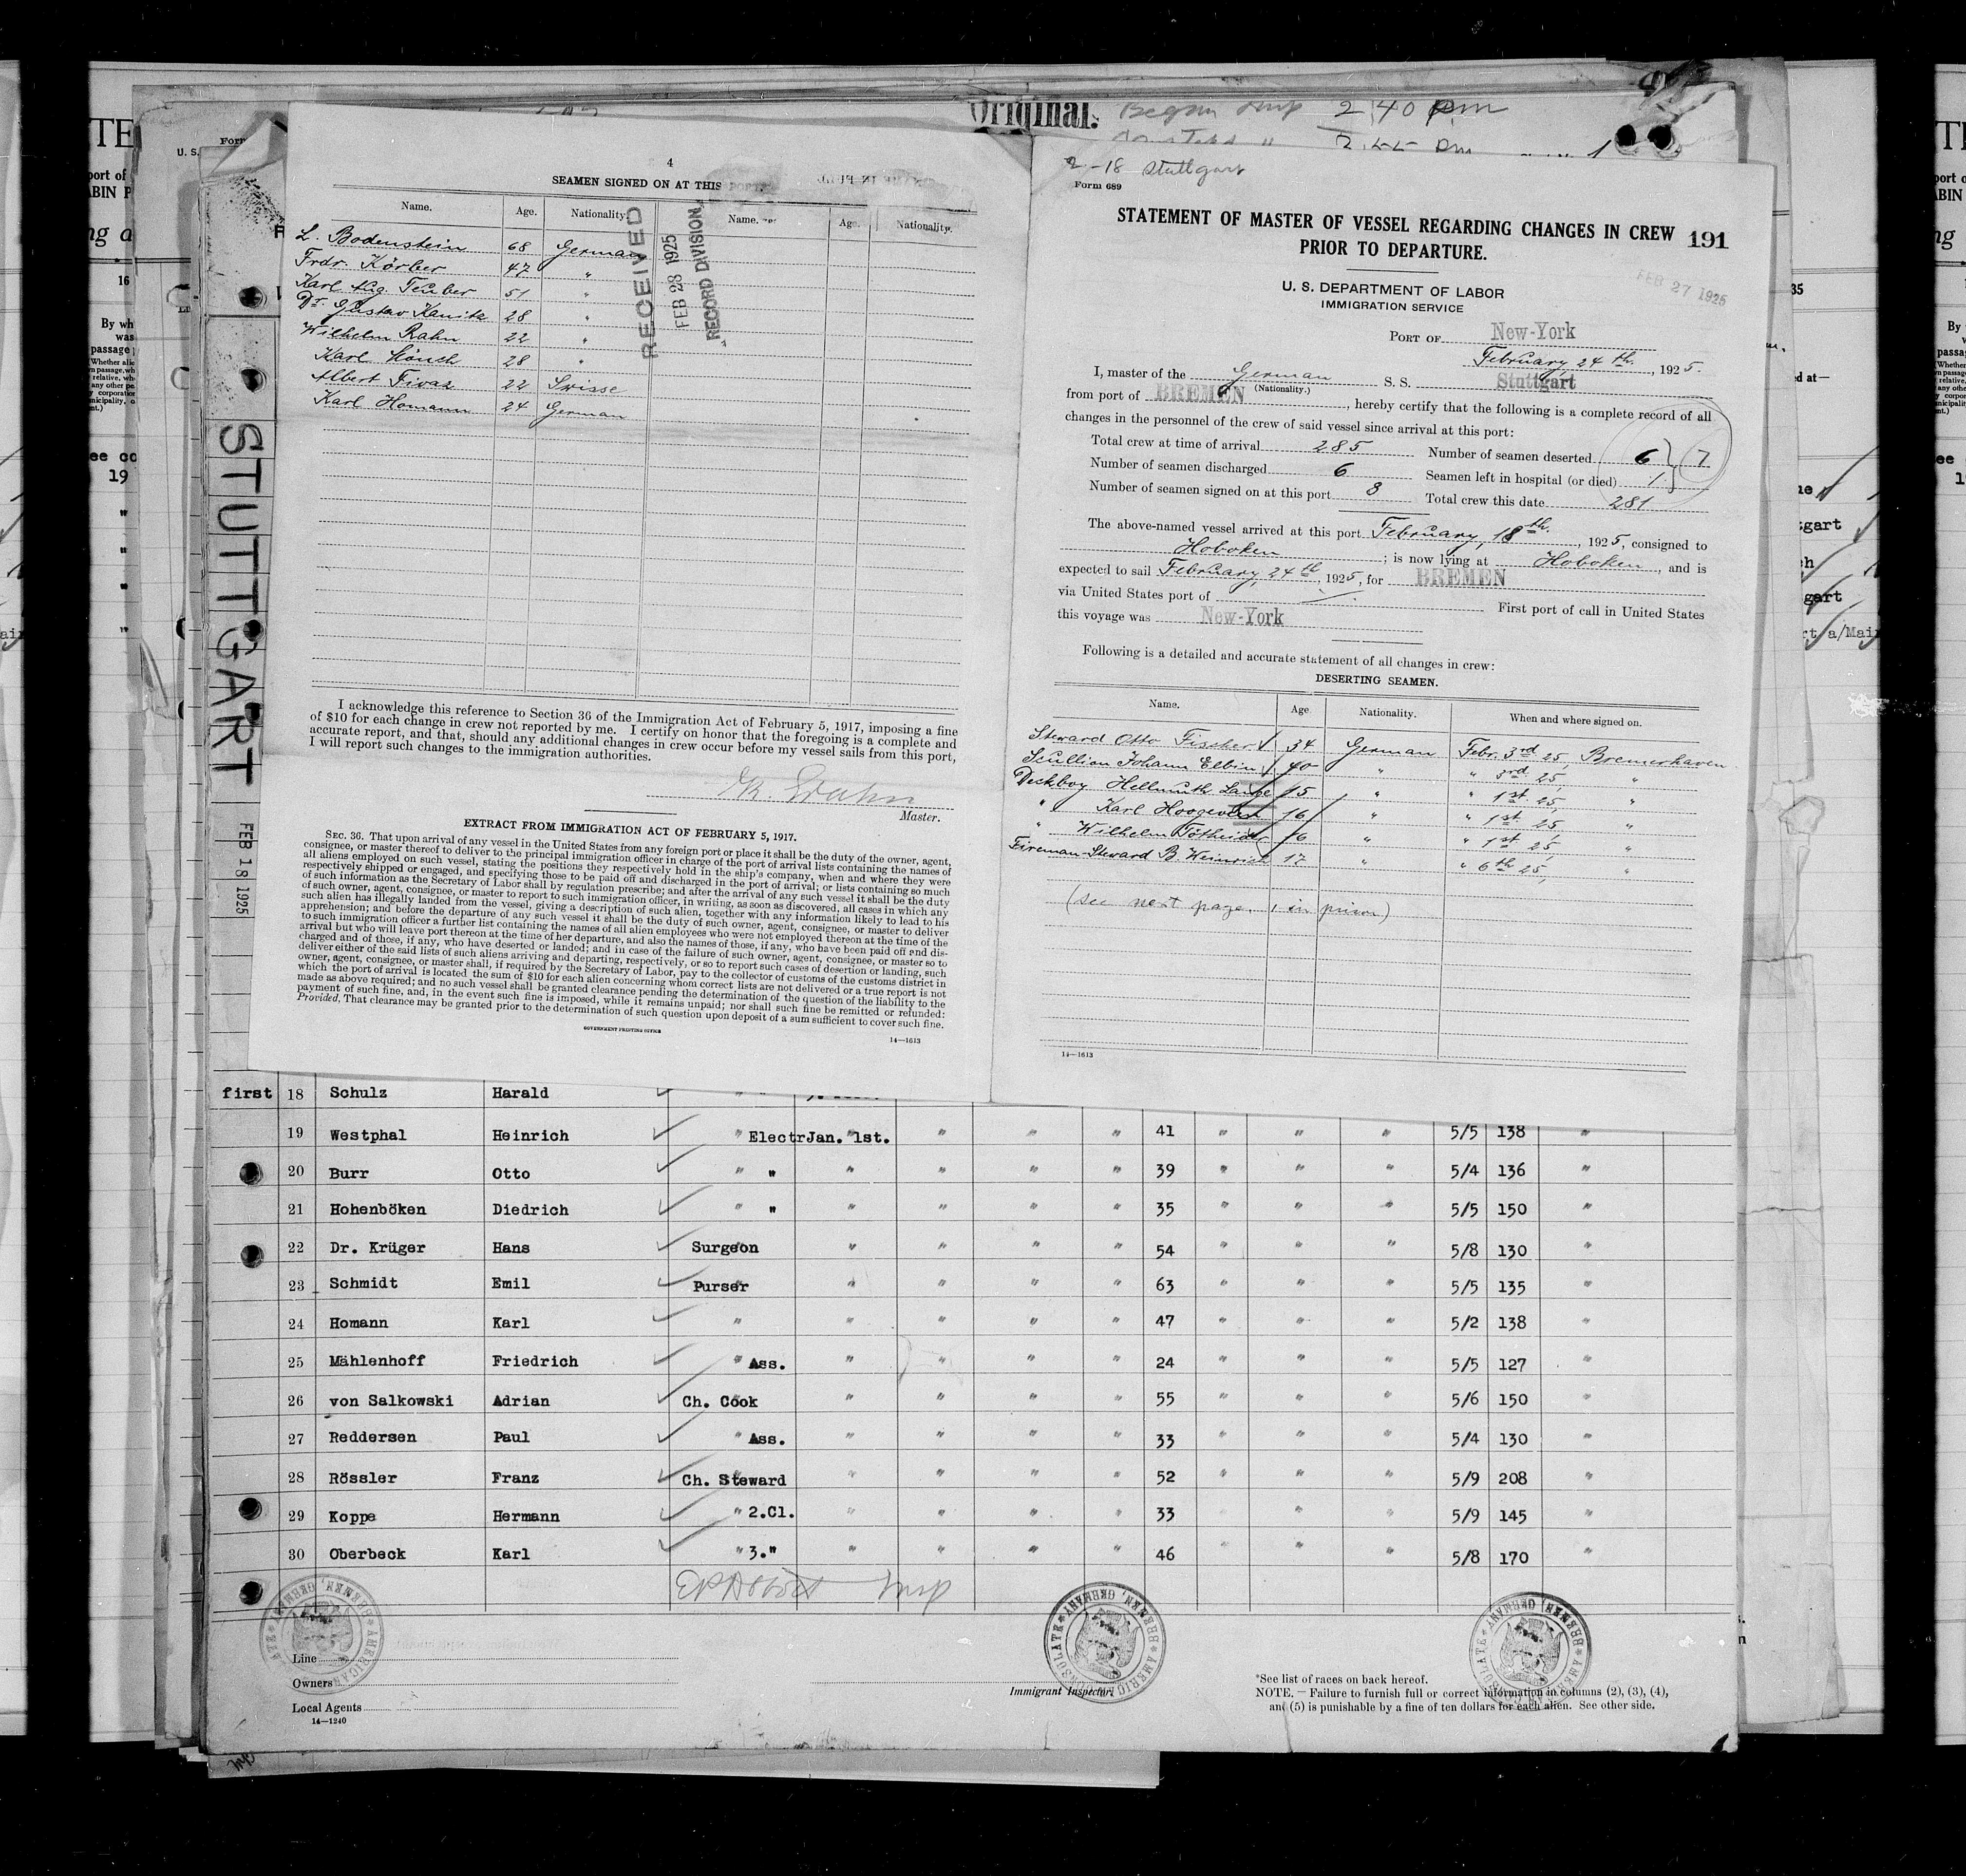 Original. Begun Insp 2 40 pm
4
SEAMEN SIGNED ON AT THIS
Name. Age. Nationality. Name. Age. Nationality.
L. Bodenstein 68 German
Frdr. Körber 47 "
Karl Aug. Teuber 51 "
Dr. Gustav Kanitz 28 "
Wilhelm Rahn 22 "
Karl Mönch 28 "
Albert Fivaz 22 Swisse
Karl Homann 24 German
RECEIVED
FEB 28 1925
RECORD DIVISION
I acknowledge this reference to Section 36 of the Immigration Act of February 5, 1917, imposing a fine
of $10 for each change in crew not reported by me. I certify on honor that the foregoing is a complete and
accurate report, and that, should any additional changes in crew occur before my vessel sails from this port,
I will report such changes to the immigration authorities.
Master.
EXTRACT FROM IMMIGRATION ACT OF FEBRUARY 5, 1917.
SEC. 36. That upon arrival of any vessel in the United States from any foreign port or place it shall be the duty of the owner, agent,
consignee, or master thereof to deliver to the principal immigration officer in charge of the port of arrival lists containing the names of
all aliens employed on such vessel, stating the positions they respectively hold in the ship's company, when and where they were
respectively shipped or engaged, and specifying those to be paid off and discharged in the port of arrival; or lists containing so much
of such information as the Secretary of Labor shall by regulation prescribe; and after the arrival of any such vessel it shall be the duty
of such owner, agent, consignee, or master to report to such immigration officer, in writing, as soon as discovered, all cases in which any
such alien has illegally landed from the vessel, giving a description of such alien, together with any information likely to lead to his
apprehension; and before the departure of any such vessel it shall be the duty of such owner, agent, consignee, or master to deliver
to such immigration officer a further list containing the names of all alien employees who were not employed thereon at the time of the
arrival but who will leave port thereon at the time of her departure, and also the names of those, if any, who have been paid off and dis-
charged and of those, if any, who have deserted or landed; and in case of the failure of such owner, agent, consignee, or master so to
deliver either of the said lists of such aliens arriving and departing, respectively, or so to report such cases of desertion or landing, such
owner, agent, consignee, or master shall, if required by the Secretary of Labor, pay to the collector of customs of the customs district in
which the port of arrival is located the sum of $10 for each alien concerning whom correct lists are not delivered or a true report is not
made as above required; and no such vessel shall be granted clearance pending the determination of the question of the liability to the
payment of such fine, and, in the event such fine is imposed, while it remains unpaid; nor shall such fine be remitted or refunded:
Provided, That clearance may be granted prior to the determination of such question upon deposit of a sum sufficient to cover such fine.
GOVERNMENT PRINTING OFFICE
14—1613
2-18 Stuttgart
Form 689
STATEMENT OF MASTER OF VESSEL REGARDING CHANGES IN CREW
PRIOR TO DEPARTURE.
191
FEB 27 1925
U. S. DEPARTMENT OF LABOR
IMMIGRATION SERVICE
PORT OF New-York
February, 24th, 1925.
I, master of the German S. S. Stuttgart
(Nationality.)
from port of BREMEN, hereby certify that the following is a complete record of all
changes in the personnel of the crew of said vessel since arrival at this port:
Total crew at time of arrival 285 Number of seamen deserted 6 7
Number of seamen discharged 6 Seamen left in hospital (or died) 1
Number of seamen signed on at this port 8 Total crew this date 281
The above-named vessel arrived at this port February, 18th., 1925, consigned to
Hoboken; is now lying at Hoboken, and is
expected to sail February, 24th, 1925, for BREMEN
via United States port of First port of call in United States
this voyage was New-York
Following is a detailed and accurate statement of all changes in crew:
DESERTING SEAMEN.
Name. Age. Nationality. When and where signed on.
Steward Otto Fischer 34 German Febr. 3rd 25, Bremerhaven
Scullion Johann Elbin 40 " " 3rd 25, "
Deckboy Hellmuth Lange 15 " " 1st 25, "
" Karl Hoogevest 16 " " 1st 25, "
" Wilhelm Tötheide 16 " " 1st 25, "
Fireman-Steward B. Weinrich 17 " " 6th 25, "
(see next page. 1 in prison)
14—1613
STUTTGART
FEB 18 1925
first 18 Schulz Harald
19 Westphal Heinrich " Electr Jan. 1st. " " " 41 " " " 5/5 138 "
20 Burr Otto " " " " " " 39 " " " 5/4 136 "
21 Hohenböken Diedrich " " " " " " 35 " " " 5/5 150 "
22 Dr. Krüger Hans Surgeon " " " " 54 " " " 5/8 130 "
23 Schmidt Emil Purser " " " " 63 " " " 5/5 135 "
24 Homann Karl " " " " " 47 " " " 5/2 138 "
25 Mählenhoff Friedrich " Ass. " " " " 24 " " " 5/5 127 "
26 von Salkowski Adrian Ch. Cook " " " " 55 " " " 5/6 150 "
27 Reddersen Paul " Ass. " " " " 33 " " " 5/4 130 "
28 Rössler Franz Ch. Steward " " " " 52 " " " 5/9 208 "
29 Koppe Hermann " 2.Cl. " " " " 33 " " " 5/9 145 "
30 Oberbeck Karl " 3." " " " " 46 " " " 5/8 170 "
Insp
Line
Owners
Local Agents
14—1240
AMERICAN CONSULATE BREMEN, GERMANY
Immigrant Inspector.
*See list of races on back hereof.
NOTE. — Failure to furnish full or correct information in columns (2), (3), (4),
and (5) is punishable by a fine of ten dollars for each alien. See other side.